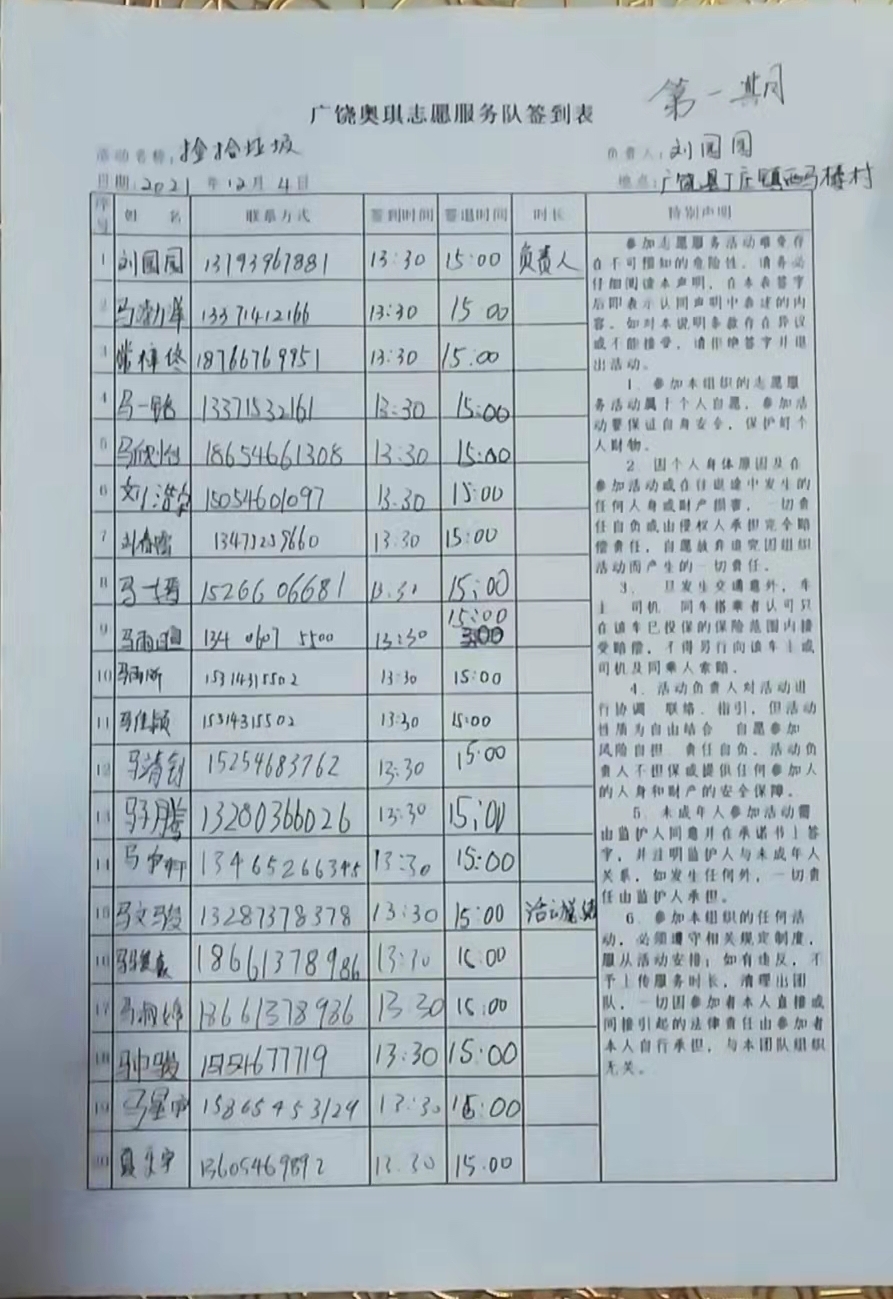 第一期
广饶奥琪志愿服务队签到表
活动名称：捡拾垃圾 负责人：刘园园
日期：2021年12月4日 地点：广饶县丁庄镇西马楼村
序号 姓名 联系方式 签到时间 签退时间 时长 特别声明
1 刘园园 13793967881 13:30 15:00 负责人
2 13371412166 13:30 15:00
3 18766769951 13:30 15:00
4 马一铭 13371532161 13:30 15:00
5 马欣怡 18654661308 13:30 15:00
6 15054601097 13:30 15:00
7 13:30 15:00
8 15266606681 13:30 15:00
9 134 0607 5500 13:30 15:00
10 15314315502 13:30 15:00
11 马佳颖 15314315502 13:30 15:00
12 15254683762 13:30 15:00
13 马子腾 13280366026 13:30 15:00
14 13465266345 13:30 15:00
15 马文骏 13287378378 13:30 15:00
16 18661378986 13:30 15:00
17 18661378986 13:30 15:00
18 15154677719 13:30 15:00
19 15865453129 13:30 15:00
20 13605469892 13:30 15:00
参加志愿服务活动难免存
在不可预知的危险性，请务必
仔细阅读本声明，在本表签字
后即表示认同声明中表述的内
容。如对本说明条款存在异议
或不能接受，请拒绝签字并退
出活动。
1、参加本组织的志愿服
务活动属于个人自愿，参加活
动要保证自身安全，保护好个
人财物。
2、因个人身体原因及在
参加活动或在往返途中发生的
任何人身或财产损害，一切责
任自负或由侵权人承担完全赔
偿责任，自愿放弃追究因组织
活动而产生的一切责任。
3、旦发生交通意外，车
主、司机、同车搭乘者认可只
在该车已投保的保险范围内接
受赔偿，不得另行向该车主或
司机及同乘人索赔。
4、活动负责人对活动进
行协调、联络、指引，但活动
性质为自由结合、自愿参加、
风险自担、责任自负。活动负
责人不担保或提供任何参加人
的人身和财产的安全保障。
5、未成年人参加活动需
由监护人同意并在承诺书上签
字，并注明监护人与未成年人
关系，如发生任何外，一切责
任由监护人承担。
6、参加本组织的任何活
动，必须遵守相关规定制度，
服从活动安排；如有违反，不
予上传服务时长，清理出团
队，一切因参加者本人直接或
间接引起的法律责任由参加者
本人自行承担，与本团队组织
无关。